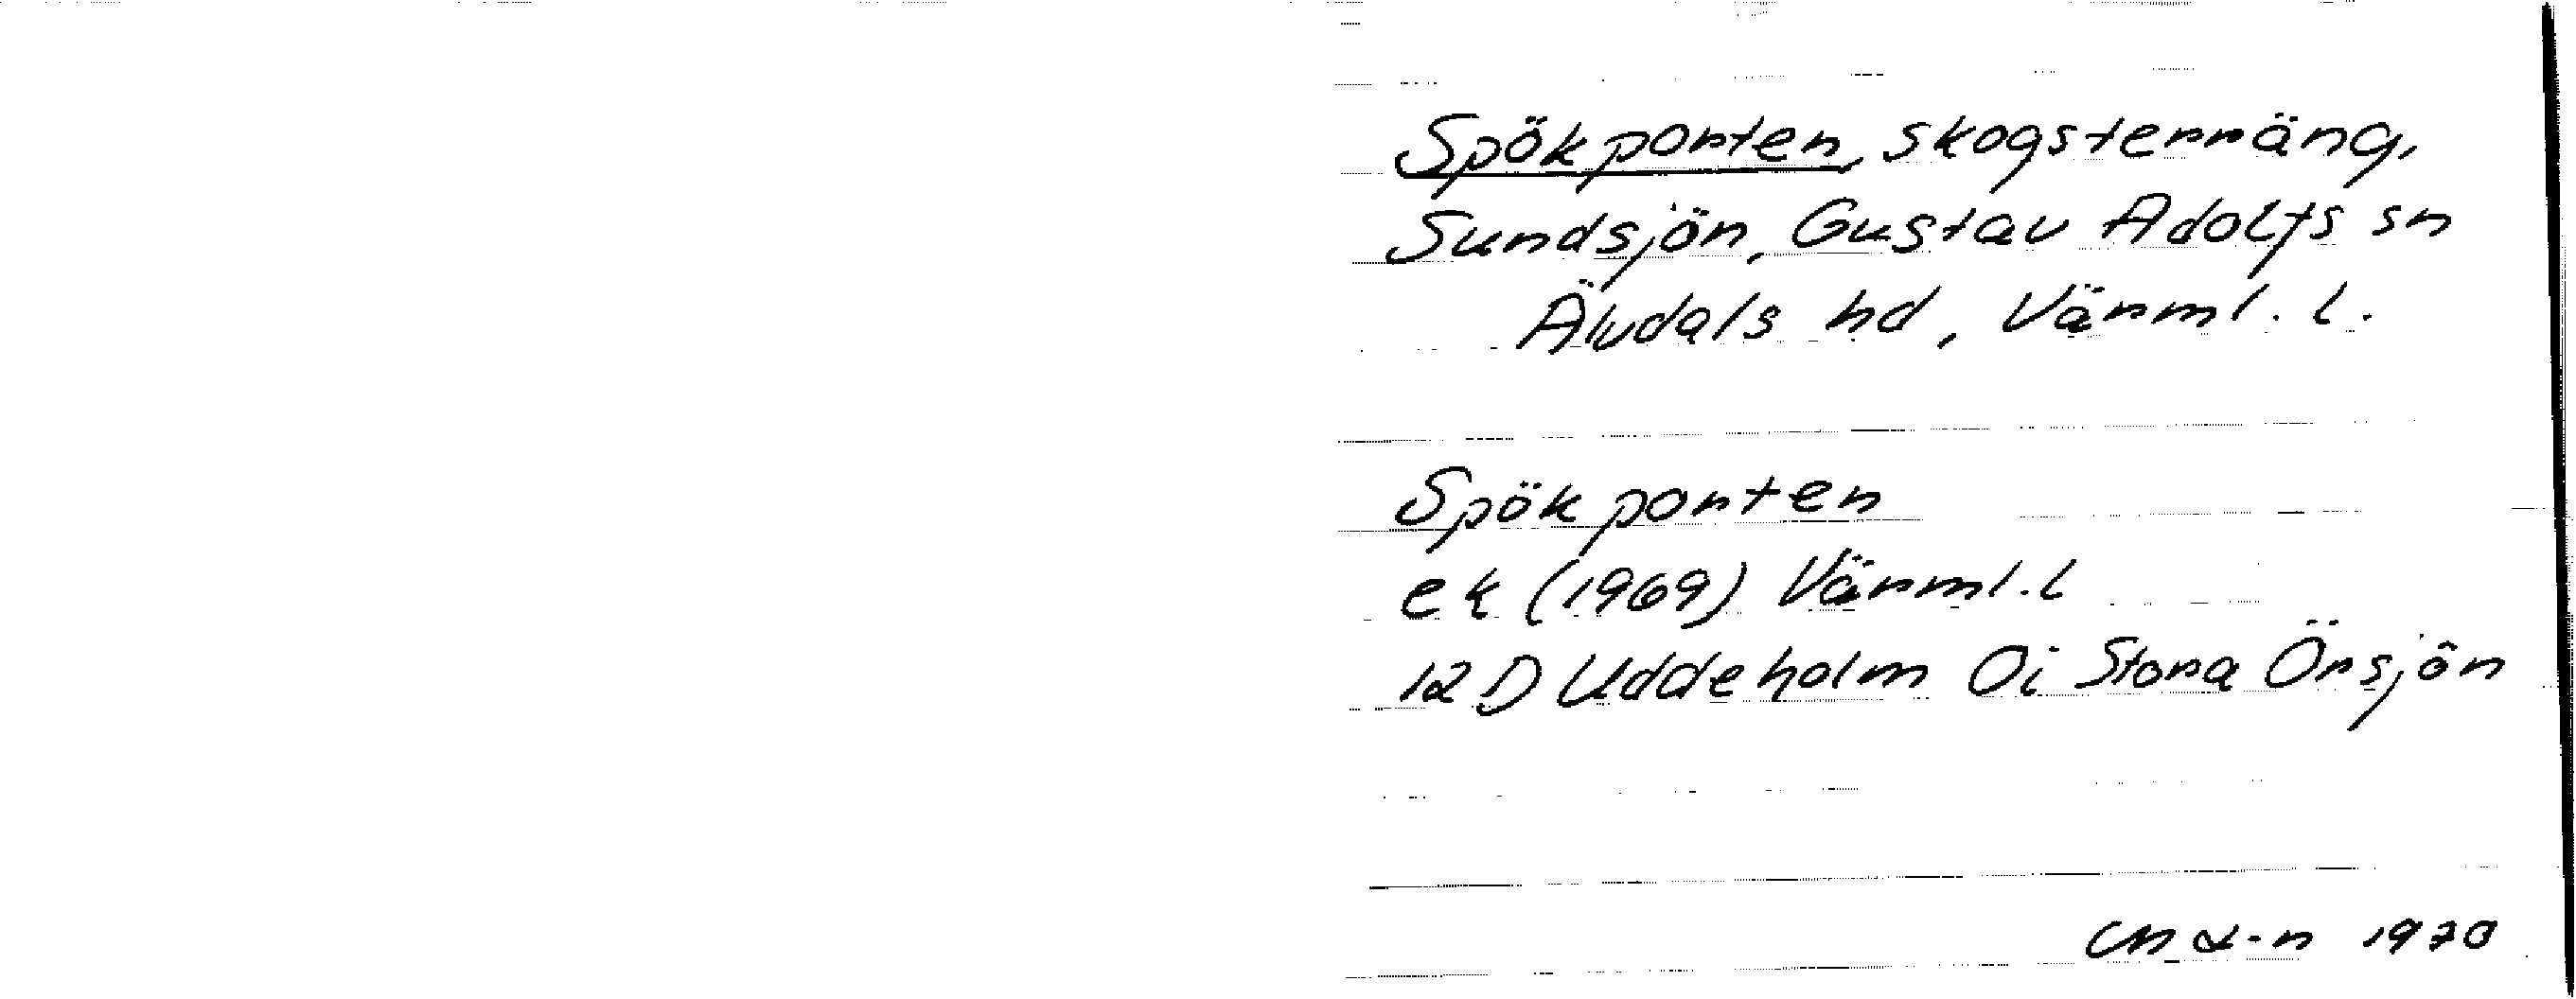 Spökporten, skogsterräng,
Sundsjön, Gustav Adolfs sn
Älvdals hd, Värml. l.
Spökporten
ek (1969) Värml. l
12 D Uddeholm Oi Stora Örsjön
1970